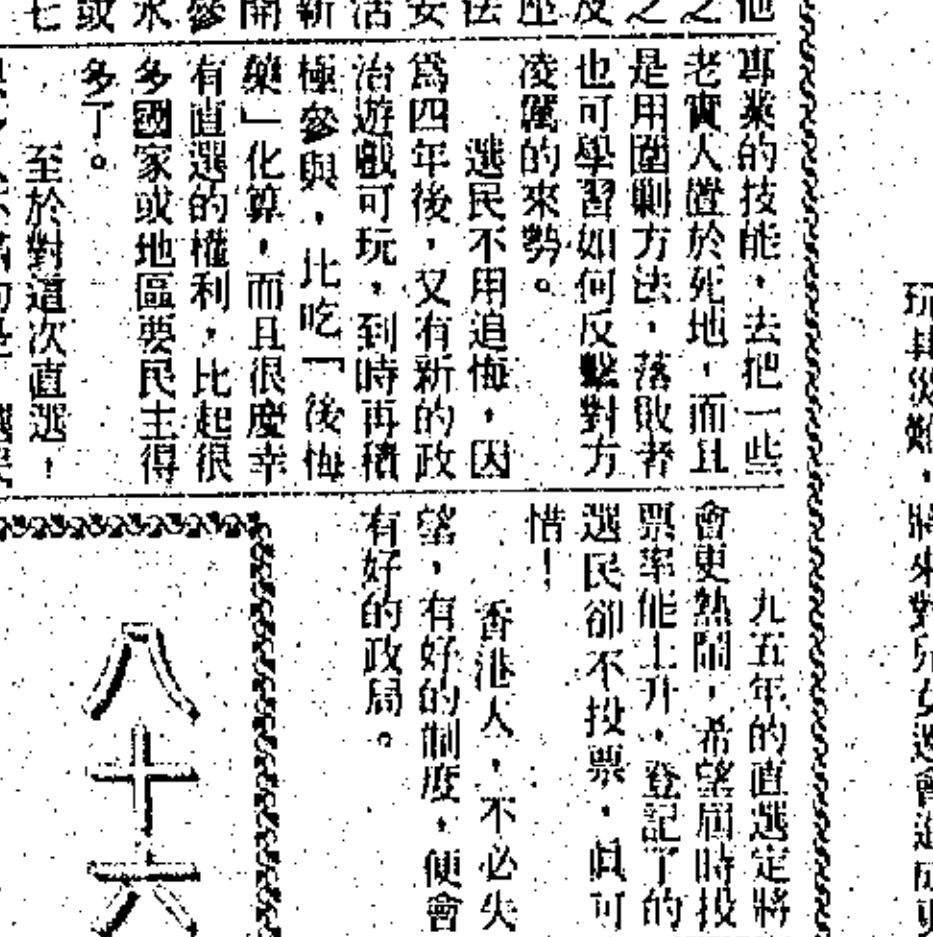 專業的技能，去把一些
老實人置於死地，而且
是用圍剿方法，落敗者
也可學習如何反擊對方
凌厲的來勢。
選民不用追悔，因
爲四年後，又有新的政
治遊戲可玩，到時再積
極參與，比吃「後悔
藥」化算，而且很慶幸
有直選的權利，比起很
多國家或地區要民主得
多了。
至於對這次直選，
九五年的直選定將
會更熱鬧，希望屆時投
票率能上升，登記了的
選民卻不投票，眞可
惜！
香港人，不必失
望，有好的制度，便會
有好的政局。
八十六